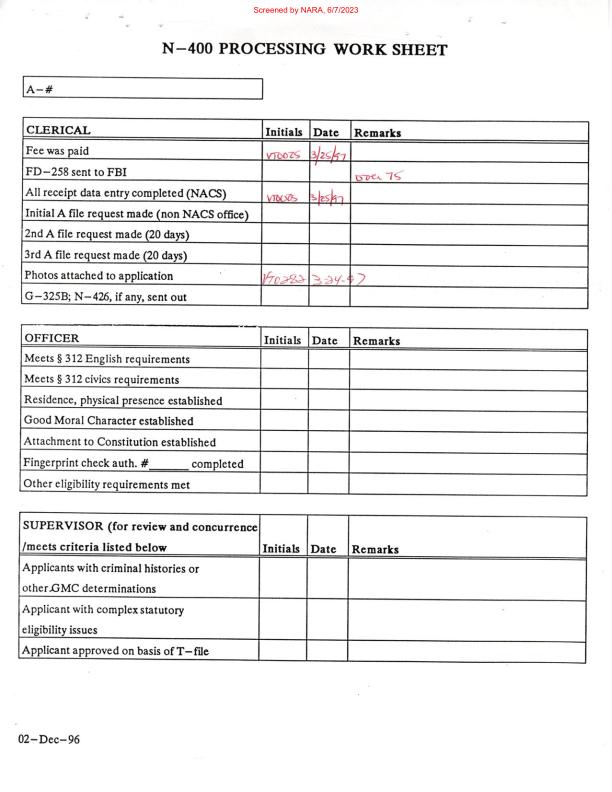 Screened by NARA, 6/7/2023
N-400 PROCESSING WORK SHEET
A-#
CLERICAL Initials Date Remarks
Fee was paid VT0025 3/25/97
FD-258 sent to FBI over 75
All receipt data entry completed (NACS) 3/25/97
Initial A file request made (non NACS office)
2nd A file request made (20 days)
3rd A file request made (20 days)
Photos attached to application VT0282 3-24-97
G-325B; N-426, if any, sent out
OFFICER Initials Date Remarks
Meets § 312 English requirements
Meets § 312 civics requirements
Residence, physical presence established
Good Moral Character established
Attachment to Constitution established
Fingerprint check auth. #______ completed
Other eligibility requirements met
SUPERVISOR (for review and concurrence
/meets criteria listed below Initials Date Remarks
Applicants with criminal histories or
other GMC determinations
Applicant with complex statutory
eligibility issues
Applicant approved on basis of T-file
02-Dec-96